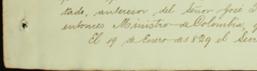 tado, antecesor del Señor José
entonces Ministro de Colombia,
El 19 de Enero de 1829 el